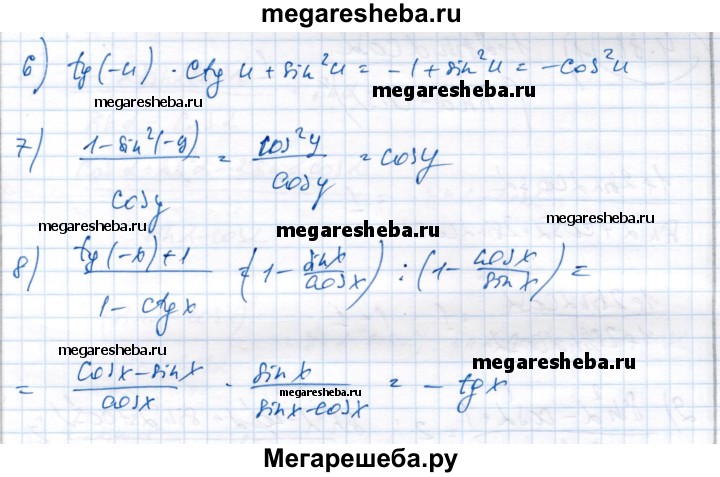 megaresheba.ru
6) tg(-u) · ctg u + sin²u = -1 + sin²u = -cos²u
megaresheba.ru megaresheba.ru
7) (1 - sin²(-y))/cosy = cos²y/cosy = cosy
megaresheba.ru
megaresheba.ru megaresheba.ru
8) (tg(-x)+1)/(1 - ctgx) = (1 - sinx/cosx) : (1 - cosx/sinx) =
megaresheba.ru megaresheba.ru
= (cosx - sinx)/cosx · sinx/(sinx - cosx) = - tgx
megaresheba.ru
Мегарешеба.ру